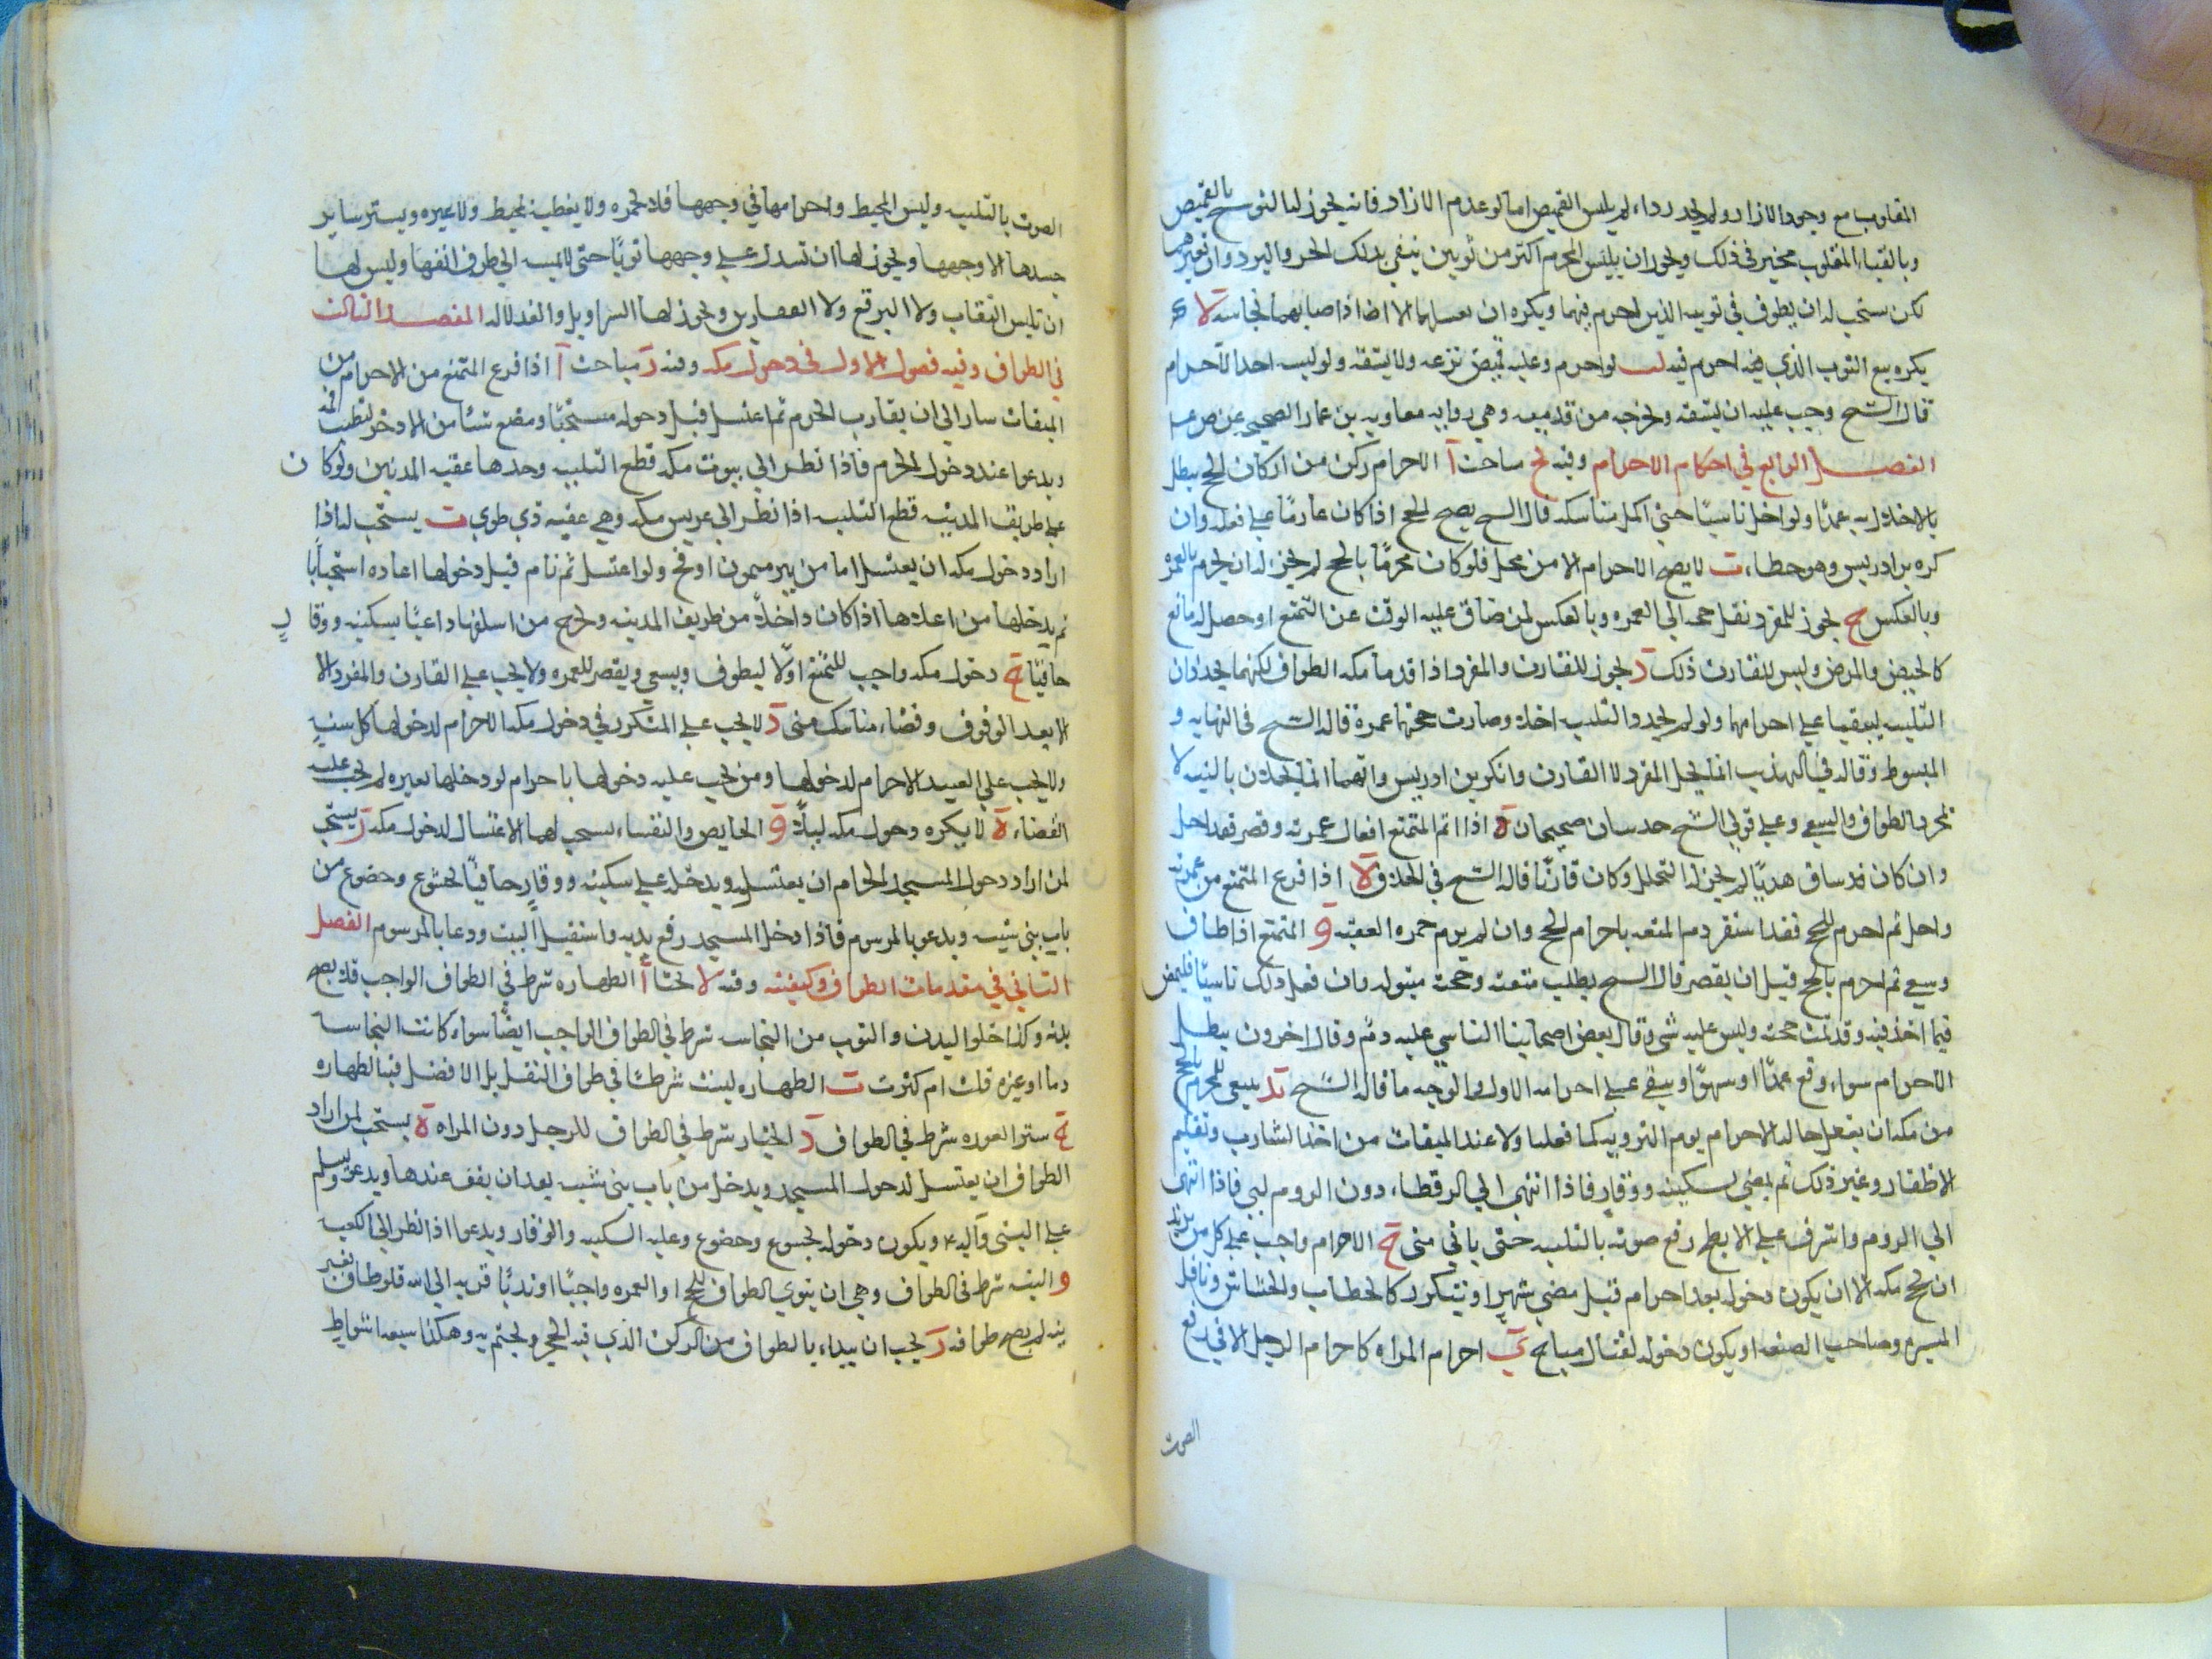 المقلوب مع وجود الازار ولو لم يجد رداء لم يلبس القميص اما لو عدم الازار فانه يجوز له التوشح بالقميص
وبالقباء المقلوب مخير في ذلك ويجوز ان يلبس المحرم اكثر من ثوبين يتقي بذلك الحر والبرد وان يغيرهما
لكن يستحب له ان يطوف في ثوبيه الذين احرم فيهما ويكره ان يغسلهما الا اذا اصابهما نجاسه لا
يكره بيع الثوب الذي احرم فيه لب لو احرم وعليه قميص نزعه ولا يشقه ولو لبسه بعد الاحرام
قال الشيخ وجب عليه ان يشقه ويخرجه من قدميه وهي روايه معاويه بن عمار الصحيحه عن ص ع
الفصل الرابع في احكام الاحرام وفيه يح مباحث آ الاحرام ركن من اركان الحج يبطل
بالاخلال به عمدًا ولو اخل ناسيًا حتى اكمل مناسكه قال الشيخ يصح الحج اذا كان عازمًا على فعله وان
كره بن ادريس وهو خطاء ب لا يصح الاحرام الا من محل فلو كان محرمًا بالحج لم يجز له ان يحرم بالعمره
وبالعكس ج يجوز للمفرد نقل حجه الى العمره وبالعكس لمن ضاق عليه الوقت عن التمتع او حصل له مانع
كالحيض والمرض وليس للقارن ذلك د يجوز للقارن والمفرد اذا قدما مكه الطواف لكنهما يجددان
التلبيه ليبقيا على احرامهما ولو لم يجددا التلبيه احلا وصارت حجتهما عمرة قاله الشيخ في النهايه و
المبسوط وقال في التهذيب انما يحل المفرد لا القارن وانكر بن ادريس وانهما انما يحلان بالنيه لا
بمجرد الطواف والسعي وعلى قولي الشيخ حديثان صحيحان ة اذا اتم المتمتع افعال عمرته وقصر فقد احل
وان كان قد ساق هديًا لم يجز له التحلل وكان قارنًا قاله الشيخ في الخلاف لا اذا فرغ المتمتع من عمرته
واحل ثم احرم للحج فقد استقر دم المتعه باحرام الحج وان لم يرم جمره العقبه و المتمتع اذا طاف
وسعى ثم احرم بالحج قبل ان يقصر قال الشيخ بطلت متعته وحجته مبتوله وان فعل ذلك ناسيًا فليمض
فيما اخذ فيه وقد تمت حجته وليس عليه شي وقال بعض اصحابنا الناسي عليه دم وقال اخرون يبطل
الاحرام سواء وقع عمدًا او سهوًا ويبقى على احرامه الاول والوجه ما قاله الشيخ ينبغي للمحرم بالحج
من مكه ان يفعل حاله الاحرام يوم الترويه كما فعله اولا عند الميقات من اخذ الشارب وتقليم
الاظفار وغير ذلك ثم يمضي بسكينه ووقار فاذا انتهى الى الرقطاء دون الروم لبى فاذا انتهى
الى الروم واشرف على الابطح رفع صوته بالتلبيه حتى ياتي منى ح الاحرام واجب على كل من يريد
ان يحج مكه الا ان يكون دخوله بعد احرام قبل مضي شهر او يتكرر كالحطاب والحشاش وناقل
الميره وصاحب الصنعه او يكون دخوله لقتال مباح ي احرام المراه كاحرام الرجل الا في رفع
الصوت
الصوت بالتلبيه ولبس المخيط واحرامها في وجهها فلا تخمره ولا يغطيه بمخيط ولا غيره ويستر ساير
جسدها الا وجهها ويجوز لها ان تسدل على وجهها ثوبًا حتى لا يمسه الى طرف انفها وليس لها
ان تلبس النقاب ولا البرقع ولا القفازين ويجوز لها السراويل والغلاله المقصد الثالث
في الطواف وفيه فصول الاول في دخول مكه وفيه ز مباحث آ اذا فرغ المتمتع من الاحرام من
الميقات سار الى ان يقارب الحرم ثم اغتسل قبل دخوله مستحبًا ومضغ شيًا من الاذخر لتطيب فمه
ويدعوا عند دخول الحرم فاذا نظر الى بيوت مكه قطع التلبيه وحدها عقبه المدنيين ولو كان
على طريق المدينه قطع التلبيه اذا نظر الى عريش مكه وهي عقبه ذي طوى ب يستحب له اذا
اراد دخول مكه ان يغتسل اما من بير ميمون او فخ ولو اغتسل ثم نام قبل دخولها اعاده استحبابا
ثم يدخلها من اعلاها اذا كان داخلا من طريق المدينه ويخرج من اسفلها داعيًا بسكينه ووقار
حافيًا ج دخول مكه واجب للمتمتع اولًا ليطوف ويسعى ويقصر للعمره ولا يجب على القارن والمفرد الا
الا بعد الوقوف وقضاء مناسك منى د لا يجب على المتكرر في دخول مكه الاحرام لدخولها كل سنه
ولا يجب على العبيد الاحرام لدخولها ومن يجب عليه دخولها باحرام لو دخلها بغيره لم يجب عليه
القضاء ة لا يكره دخول مكه ليلًا و الحايض والنفساء يستحب لهما الاغتسال لدخول مكه ز يستحب
لمن اراد دخول المسجد الحرام ان يغتسل ويدخل على سكينه ووقار حافيًا بخشوع وخضوع من
باب بني شيبه ويدعو بالمرسوم فاذا دخل المسجد رفع يديه واستقبل البيت ودعا بالمرسوم الفصل
الثاني في مقدمات الطواف وكيفيته وفيه لا بحثا آ الطهاره شرط في الطواف الواجب فلا يصح
بدونه وكذا خلو البدن والثوب من النجاسه شرط في الطواف الواجب ايضًا سواء كانت النجاسه
دما او غيره قلت ام كثرت ب الطهاره ليست شرطًا في طواف النفل بل الافضل فيه الطهاره
ج ستر العوره شرط في الطواف د الختان شرط في الطواف للرجل دون المراه ة يستحب لمن اراد
الطواف ان يغتسل لدخول المسجد ويدخل من باب بني شيبه بعد ان يقف عندها ويدعو ويسلم
على النبي وآله ع ويكون دخوله بخشوع وخضوع وعليه السكينه والوقار ويدعوا اذا نظر الى الكعبه
و النيه شرط في الطواف وهي ان ينوي الطواف للحج او العمره واجبًا او ندبًا قربه الى الله فلو طاف بغير
نيه لم يصح طوافه ز يجب ان يبداء بالطواف من الركن الذي فيه الحجر ويختم به وهكذا سبعه اشواط